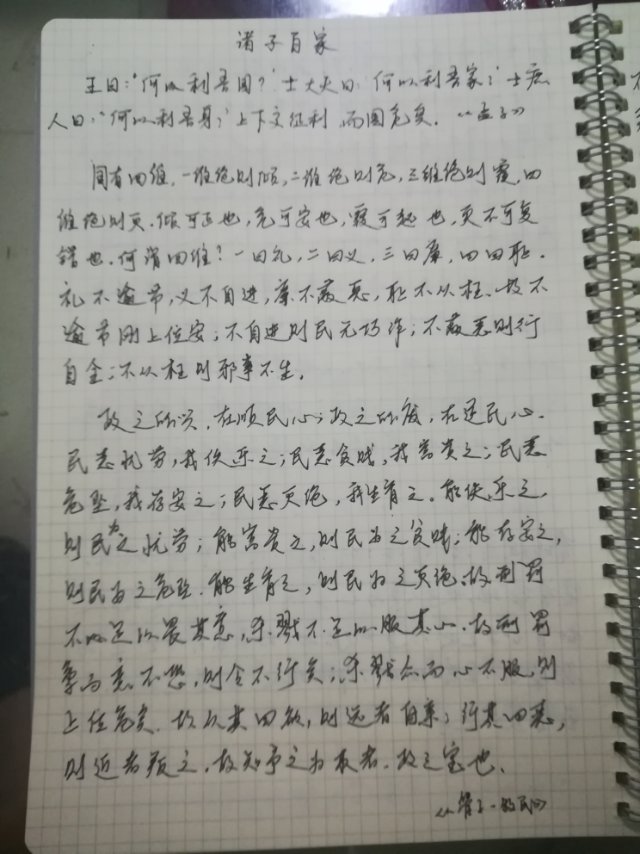 诸子百家
王曰:“何以利吾国?”士大夫曰:“何以利吾家?”士庶
人曰:“何以利吾身?”上下交征利,而国危矣.《孟子》
国有四维,一维绝则倾,二维绝则危,三维绝则覆,四
维绝则灭.倾可正也,危可安也,覆可起也,灭不可复
错也.何谓四维?一曰礼,二曰义,三曰廉,四曰耻.
礼不逾节,义不自进,廉不蔽恶,耻不从枉.故不
逾节则上位安;不自进则民无巧诈;不蔽恶则行
自全;不从枉则邪事不生.
政之所兴,在顺民心;政之所废,在逆民心.
民恶忧劳,我佚乐之;民恶贫贱,我富贵之;民恶
危坠,我存安之;民恶灭绝,我生育之.能佚乐之,
则民为之忧劳;能富贵之,则民为之贫贱;能存安之,
则民为之危坠.能生育之,则民为之灭绝.故刑罚
不以足以畏其意,杀戮不足以服其心.故刑罚
繁而意不恐,则令不行矣;杀戮众而心不服,则
上位危矣.故从其四欲,则远者自亲;行其四恶,
则近者叛之.故知予之为取者.政之宝也.
《管子·牧民》